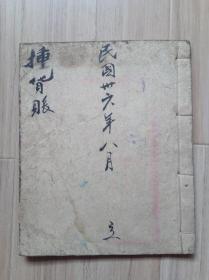 民國卅六年 八月 立
賬